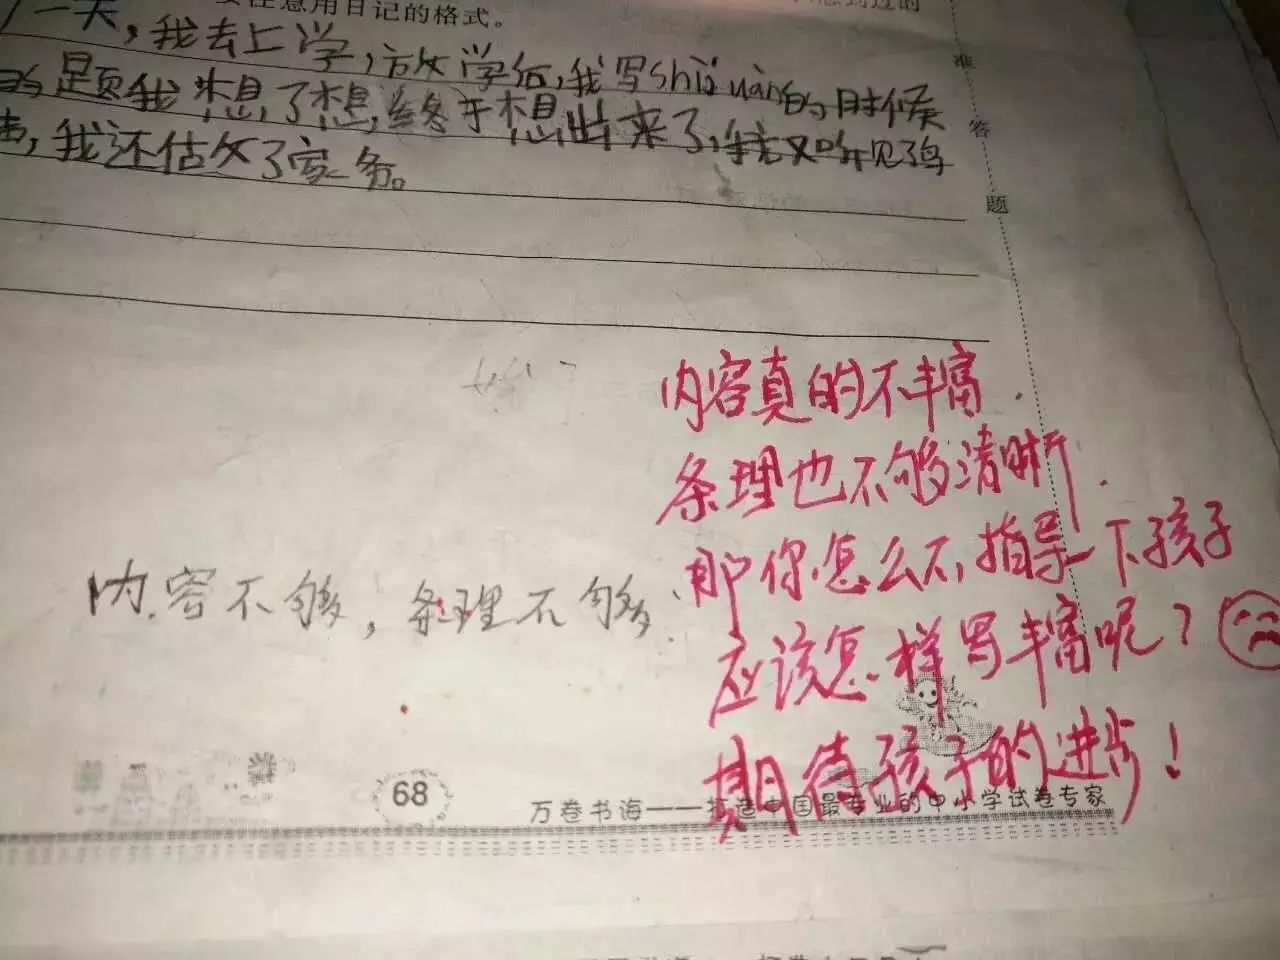 意用日记的格式。
一天，我去上学，放学后，我写shijuan的时候
题我想了想，终于想出来了，
我还估文了家务。
准
答
题
内容真的不丰富.
条理也不够清晰.
那你怎么不指导一下孩子
应该怎样写丰富呢？
期待孩子的进步！
内容不够，条理不够.
68
万卷书海——打造中国最专业的中小学试卷专家